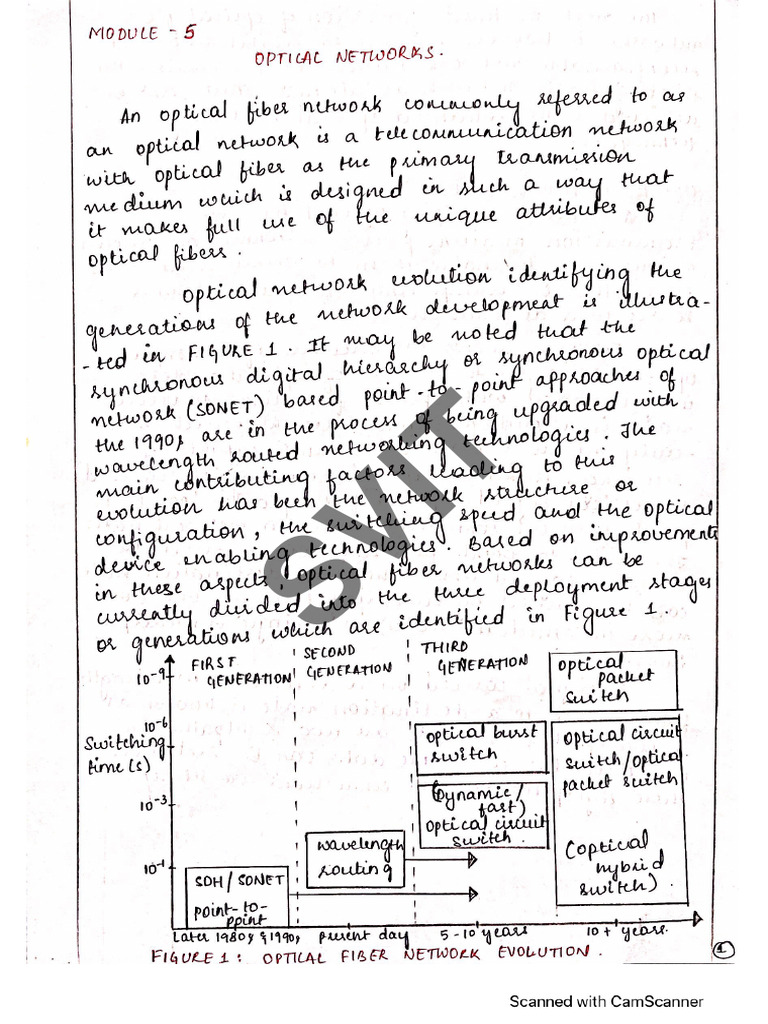 MODULE - 5
OPTICAL NETWORKS.
An optical fiber network commonly referred to as
an optical network is a telecommunication network
with optical fiber as the primary transmission
medium which is designed in such a way that
it makes full use of the unique attributes of
optical fibers.
Optical network evolution identifying the
generations of the network development is illustra-
-ted in FIGURE 1. It may be noted that the
synchronous digital hierarchy or synchronous optical
network (SONET) based point-to-point approaches of
the 1990s are in the process of being upgraded with
wavelength routed networking technologies. The
main contributing factors leading to this
evolution has been the network structure or
configuration, the switching speed and the optical
device enabling technologies. Based on improvements
in these aspects, optical fiber networks can be
currently divided into the three deployment stages
or generations which are identified in Figure 1.
SVIT
FIRST
GENERATION
SECOND
GENERATION
THIRD
GENERATION
optical
packet
switch
10-9
10-6
Switching
time(s)
10-3
10-1
optical burst
switch
(Dynamic/
fast)
optical circuit
switch.
optical circuit
switch/optical
packet switch
(optical
hybrid
switch)
wavelength
routing
SDH/SONET
point-to-
point
Later 1980s & 1990s
present day
5-10 years
10+ years.
FIGURE 1: OPTICAL FIBER NETWORK EVOLUTION.
1
Scanned with CamScanner